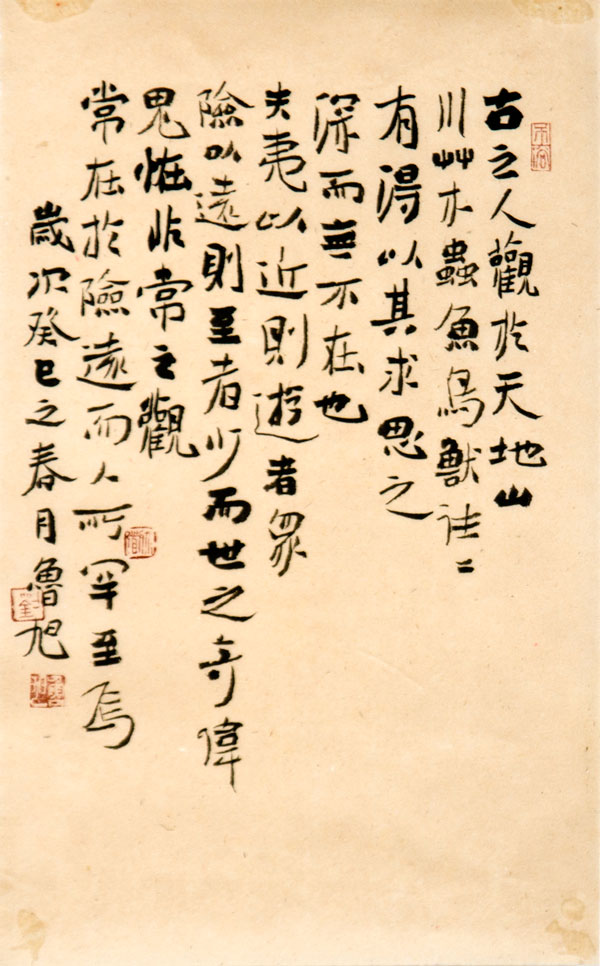 古之人觀於天地山
川艸木蟲魚鳥獸往〻
有得以其求思之
深而無不在也
夫夷以近則遊者眾
險以遠則至者少而世之奇偉
鬼恠非常之觀
常在於險遠而人所罕至焉
歲次癸巳之春月魯旭